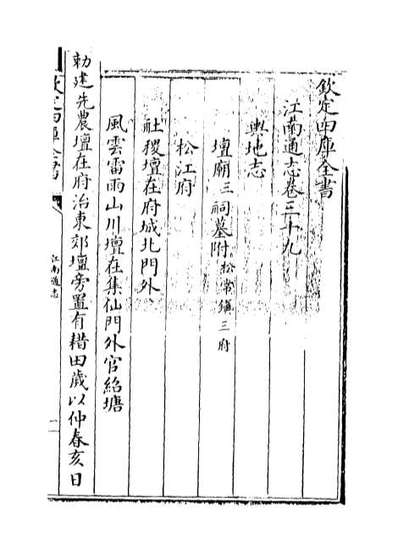 欽定四庫全書
江南通志卷三十九
輿地志
壇廟三祠墓附 松常鎮三府
松江府
社稷壇在府城北門外
風雲雷雨山川壇在集仙門外官紹塘
勅建先農壇在府治東郊壇旁置有耤田歲以仲春亥日
欽定四庫全書
江南通志
一